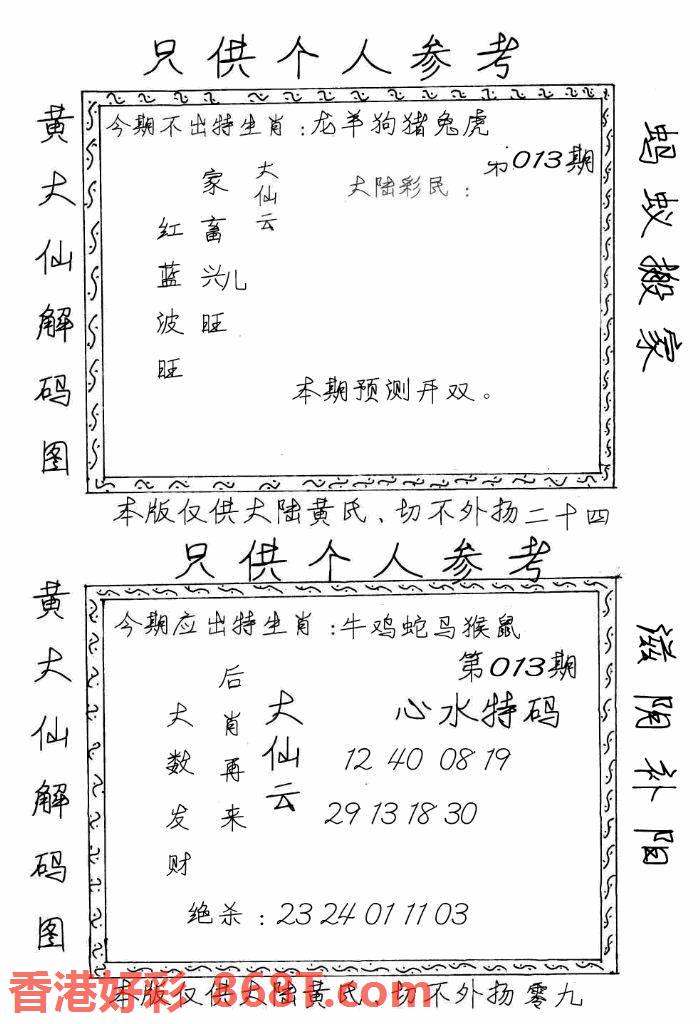 只供个人参考
黄大仙解码图
今期不出特生肖：龙羊狗猪兔虎
第013期
大陆彩民：
大仙云
家畜兴旺
儿
红蓝波旺
本期预测开双。
蚂蚁搬家
本版仅供大陆黄氏、切不外扬二十四
只供个人参考
黄大仙解码图
今期应出特生肖：牛鸡蛇马猴鼠
第013期
大仙云
后肖再来
大数发财
心水特码
12 40 08 19
29 13 18 30
绝杀：23 24 01 11 03
滋阴补阳
本版仅供大陆黄氏、切不外扬零九
香港好彩 868T.com